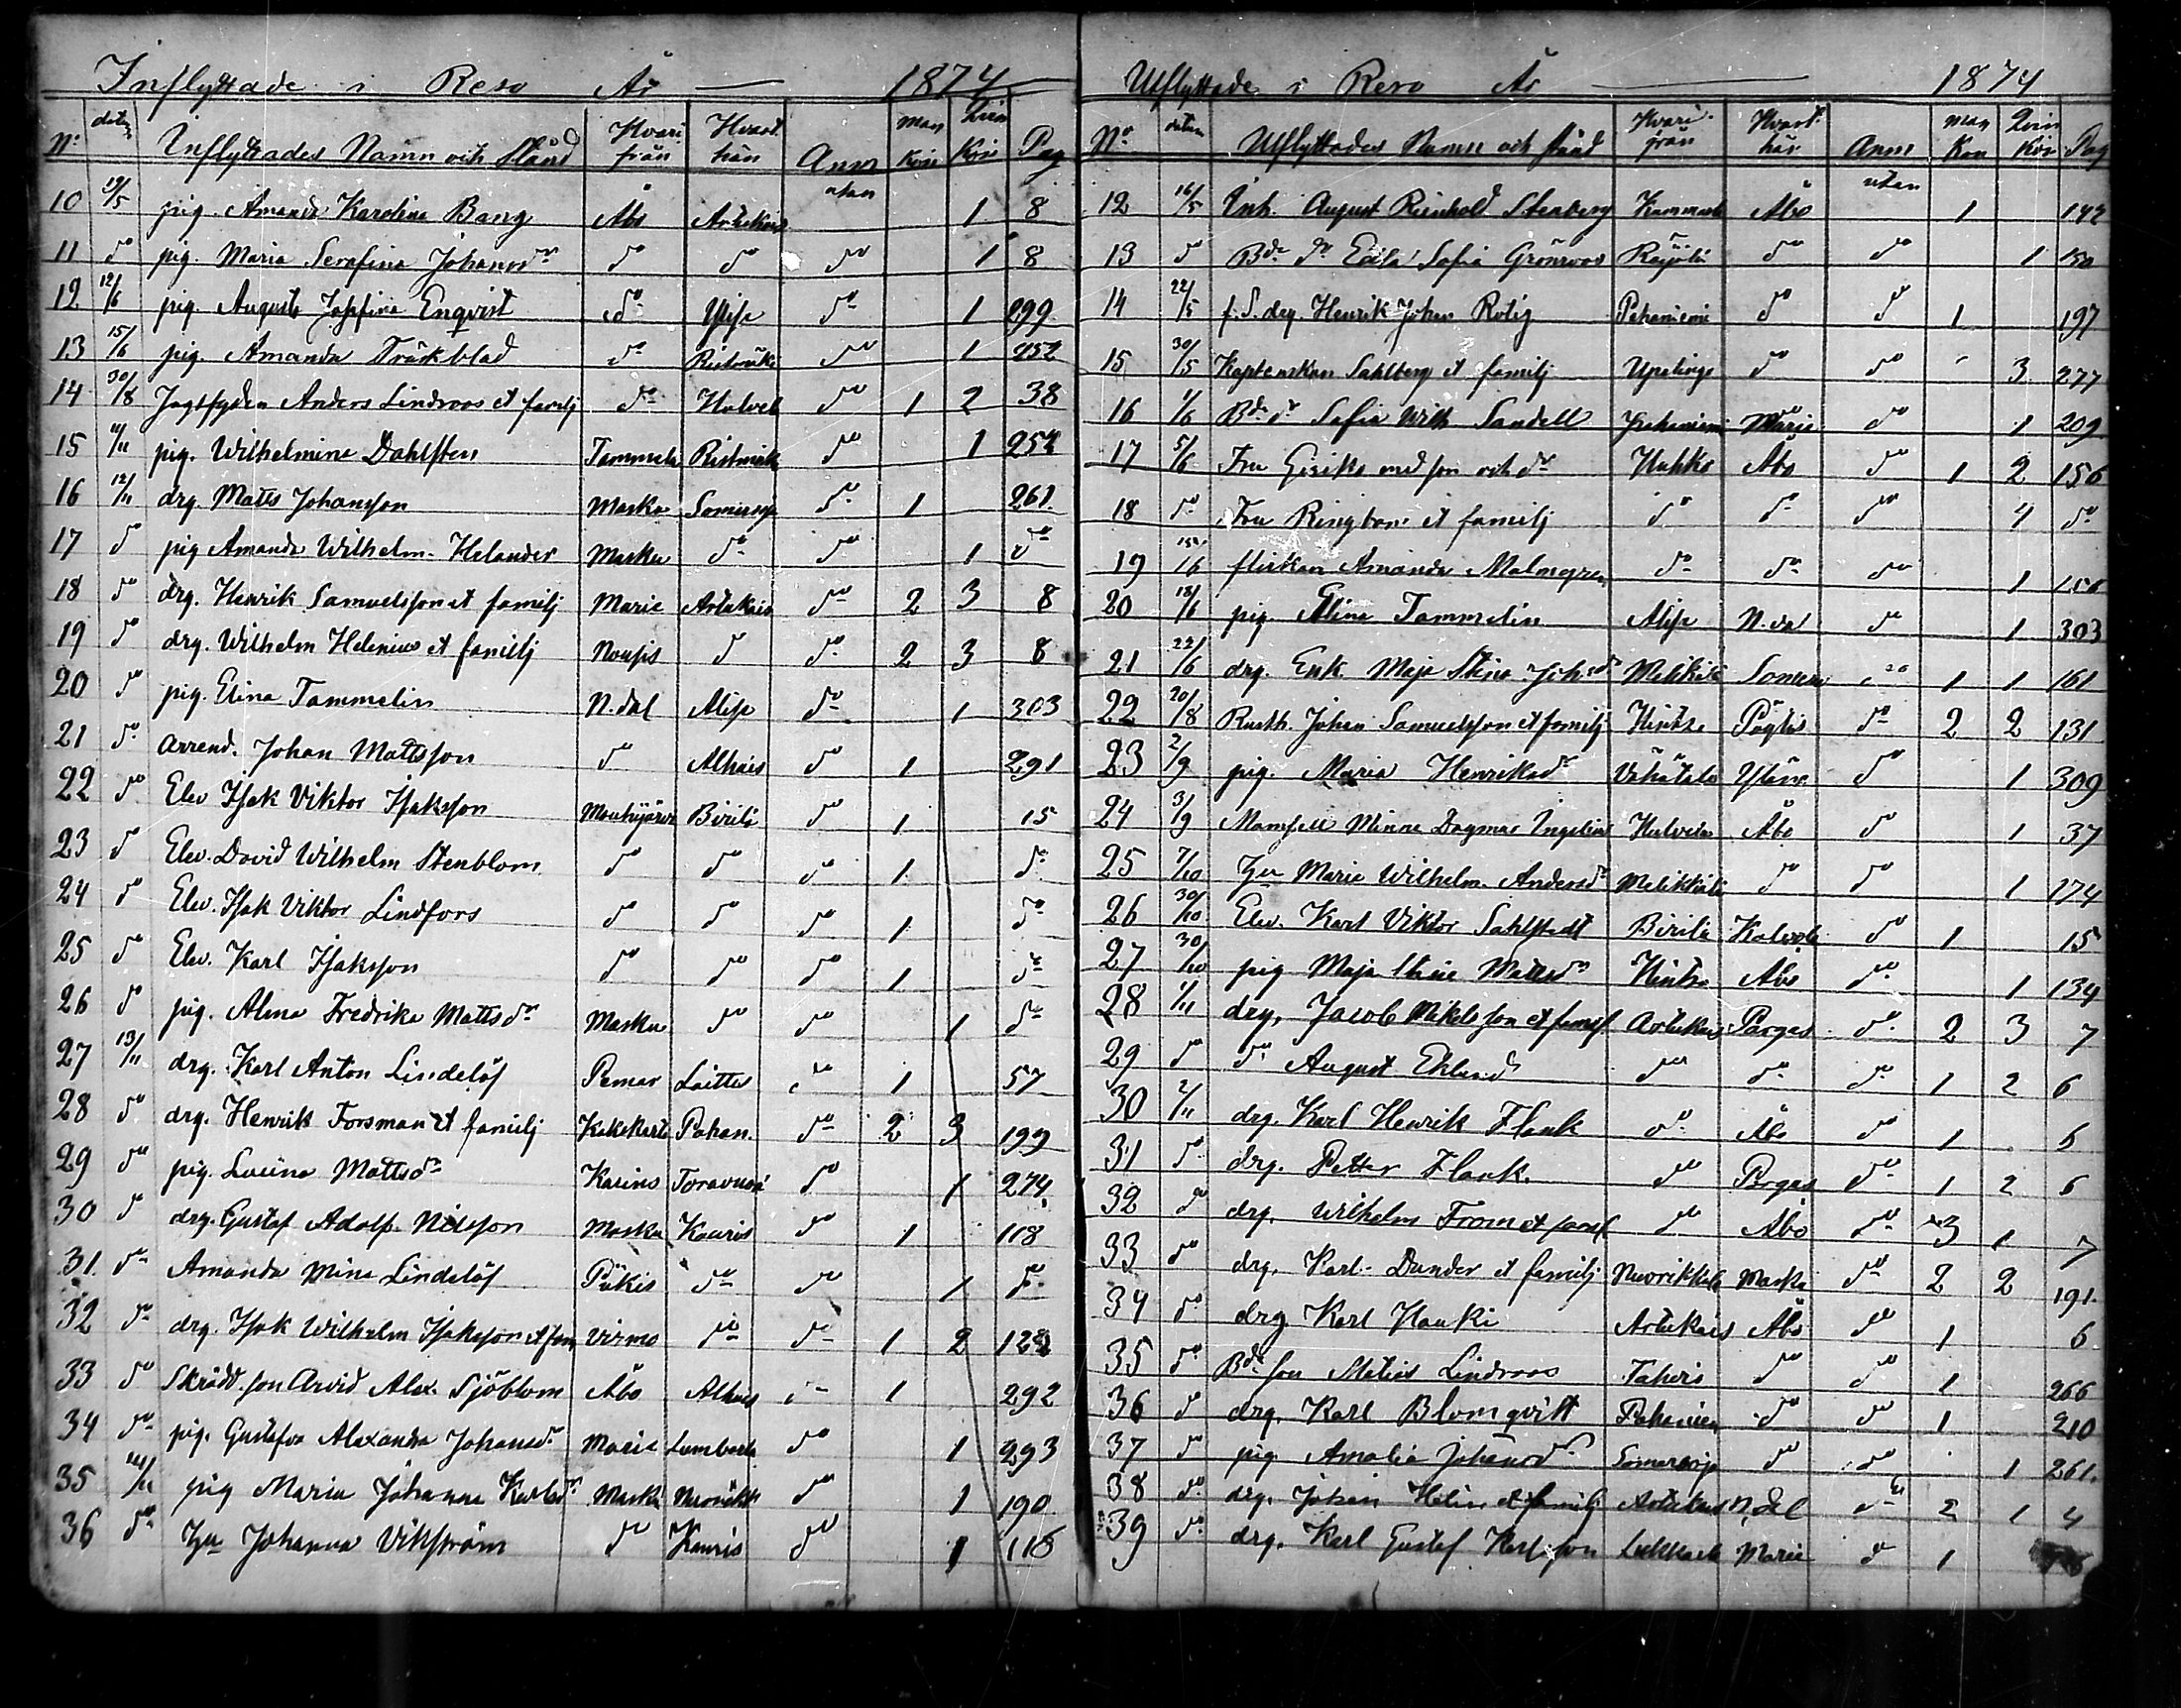 Inflyttade i Reso År 1874
No datum Inflyttades Namn och Stånd Hvarifrån Hvart hän Anm man kön Qvin kön Pag
10 19/5 pig. Amanda Karolina Bang Åbo Artukais utan 1 8
11 do pig. Maria Serafina Johansdr do do do 1 8
12 12/6 pig. Augusta Josefina Enqvist do 1 299
13 15/6 pig. Amanda Träskblad do do 1 252
14 30/8 Anders Lindroos et familj do do 1 2 38
15 11/11 pig. Wilhelmina Dahlsten Tammela do 1 254
16 12/11 drg. Matts Johansson Masku do 1 261
17 do pig Amanda Wilhelm. Helander Masku do do 1 do
18 do drg. Henrik Samuelsson et familj Marie Artukais do 2 3 8
19 do drg. Wilhelm Helenius et familj Nousis do do 2 3 8
20 do pig. Elina Tammelin N.dal do 1 303
21 do arrend. Johan Mattsson do Alhais do 1 291
22 do Elev Isak Viktor Isaksson Mouhijärvi Birilä do 1 15
23 do Elev. David Wilhelm Stenblom do do do 1 do
24 do Elev. Isak Viktor Lindfors do do do 1 do
25 do Elev. Karl Isaksson do do do 1 do
26 do pig. Alma Fredrika Mattsdr Masku do do 1 do
27 13/11 drg. Karl Anton Lindelöf Pemar do 1 57
28 do drg. Henrik Forsman et familj Pahan. do 2 3 199
29 do pig. Mattsdr do 1 274
30 do drg. Gustaf Adolf Nilsson Masku Kauris do 1 118
31. do Amanda Mina Lindelöf Pikis do do 1 do
32 do drg. Isak Wilhelm Isaksson et fam Virmo do do 1 2
33 do Skrädd. son Arvid Alex. Sjöblom Åbo Alhais 1 292
34 do pig. Gustafva Alexandra Johansdr Marie do 1 293
35 pig Maria Johanna Karlsdr Masku do 1 190
36 do Johanna Vikström do Kauris do 1 118
Utflyttade i Reso År 1874
No datum Utflyttades Namn och stånd Hvarifrån Hvart hän Anm man kön Qvin kön Pag
12 16/5 Inh. August Reinhold Stenberg Åbo utan 1 142
13 do Bde dr Sofia Grönroos do do 1 150
14 22/5 f.S. drg. Henrik Johan Rolig Pahaniemi do do 1 197
15 30/5 Kaptenskan Sahlberg et familj Upalinge do do 3 277
16 1/6 Bde dr Sofia Wilh Sandell Pahaniemi Marie do 1 209
17 5/6 Fru med son och dr Huhko Åbo do 1 2 156
18 do Fru Ringbom et familj do do do 4 do
19 flickan Amanda Malmgren do do do 1 156
20 18/6 pig. Elina Tammelin N.dal do 1 303
21 22/6 drg. Enk. Maja Stina Joh.dr 1 1 161
22 20/8 Rusth. Johan Samuelsson et familj Hintsa Pöytis do 2 2 131
23 2/9 pig. Maria Henriksdr do 1 309
24 3/9 Mamsell Minna Dagmar Ingelius Åbo do 1 37
25 7/10 Maria Wilhelm. Andersdr do do 1 174
26 30/10 Elev. Karl Viktor Sahlstedt Birilä do 1 15
27 30/10 pig Maja Stina Mattsdr Hintsa Åbo do 1 134
28 1/11 drg. Jacob Mikelsson et famil Artukais Parges do 2 3 7
29 do do August Eklund do do do 1 2 6
30 2/11 drg. Karl Henrik Flank do Åbo do 1 6
31 do drg. Petter Flank. do Parges do 1 2 6
32 do drg. Wilhelm From et famil do Åbo do 3 1 7
33 do drg. Karl Dander et familj Nuorikkala Masku do 2 2 191.
34 do drg Karl Hauki Artukais Åbo do 1 6
35 do Bde son Lindroos do do 1 266
36 do drg. Karl Blomqvist Pahaniem do do 1 210
37 do pig. Amalia Johansdr do do 1 261.
38 do drg. Johan Helin et familj Artukais N.dal do 2 1 4
39 do drg. Karl Gustaf Karlsson Marie do 1